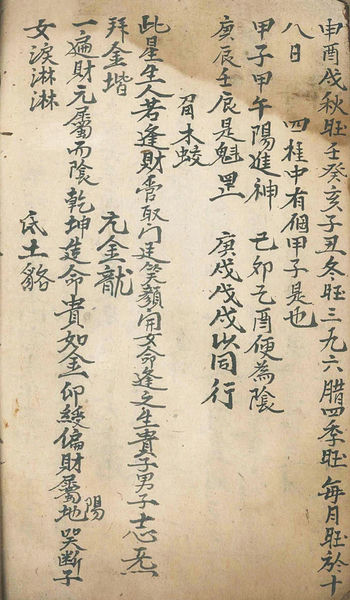 申酉戌秋旺壬癸亥子丑冬旺三九六腊四季旺每月旺於十
八日　四柱中有個甲子是也
甲子甲午陽進神　己卯己酉便為陰
庚辰壬辰是魁罡　庚戌戊戌以同行
角木蛟
此星生人若逢財 取门廷笑顏開女命逢之生貴子男子 
拜金堦　亢金龍
一遍財元屬而陰乾坤造命貴如金印綬偏財屬地陽哭斷子
女淚淋淋　氐土貉